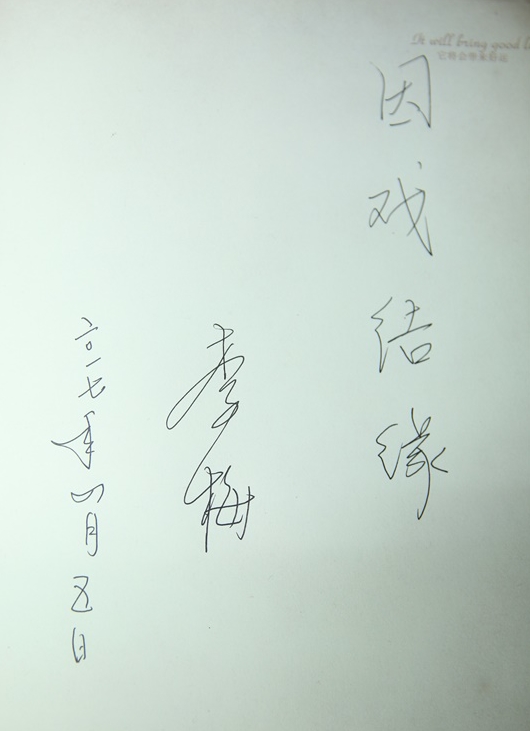 It will bring good l
它将会带来好运
因戏结缘
李梅
二〇一七年四月五日